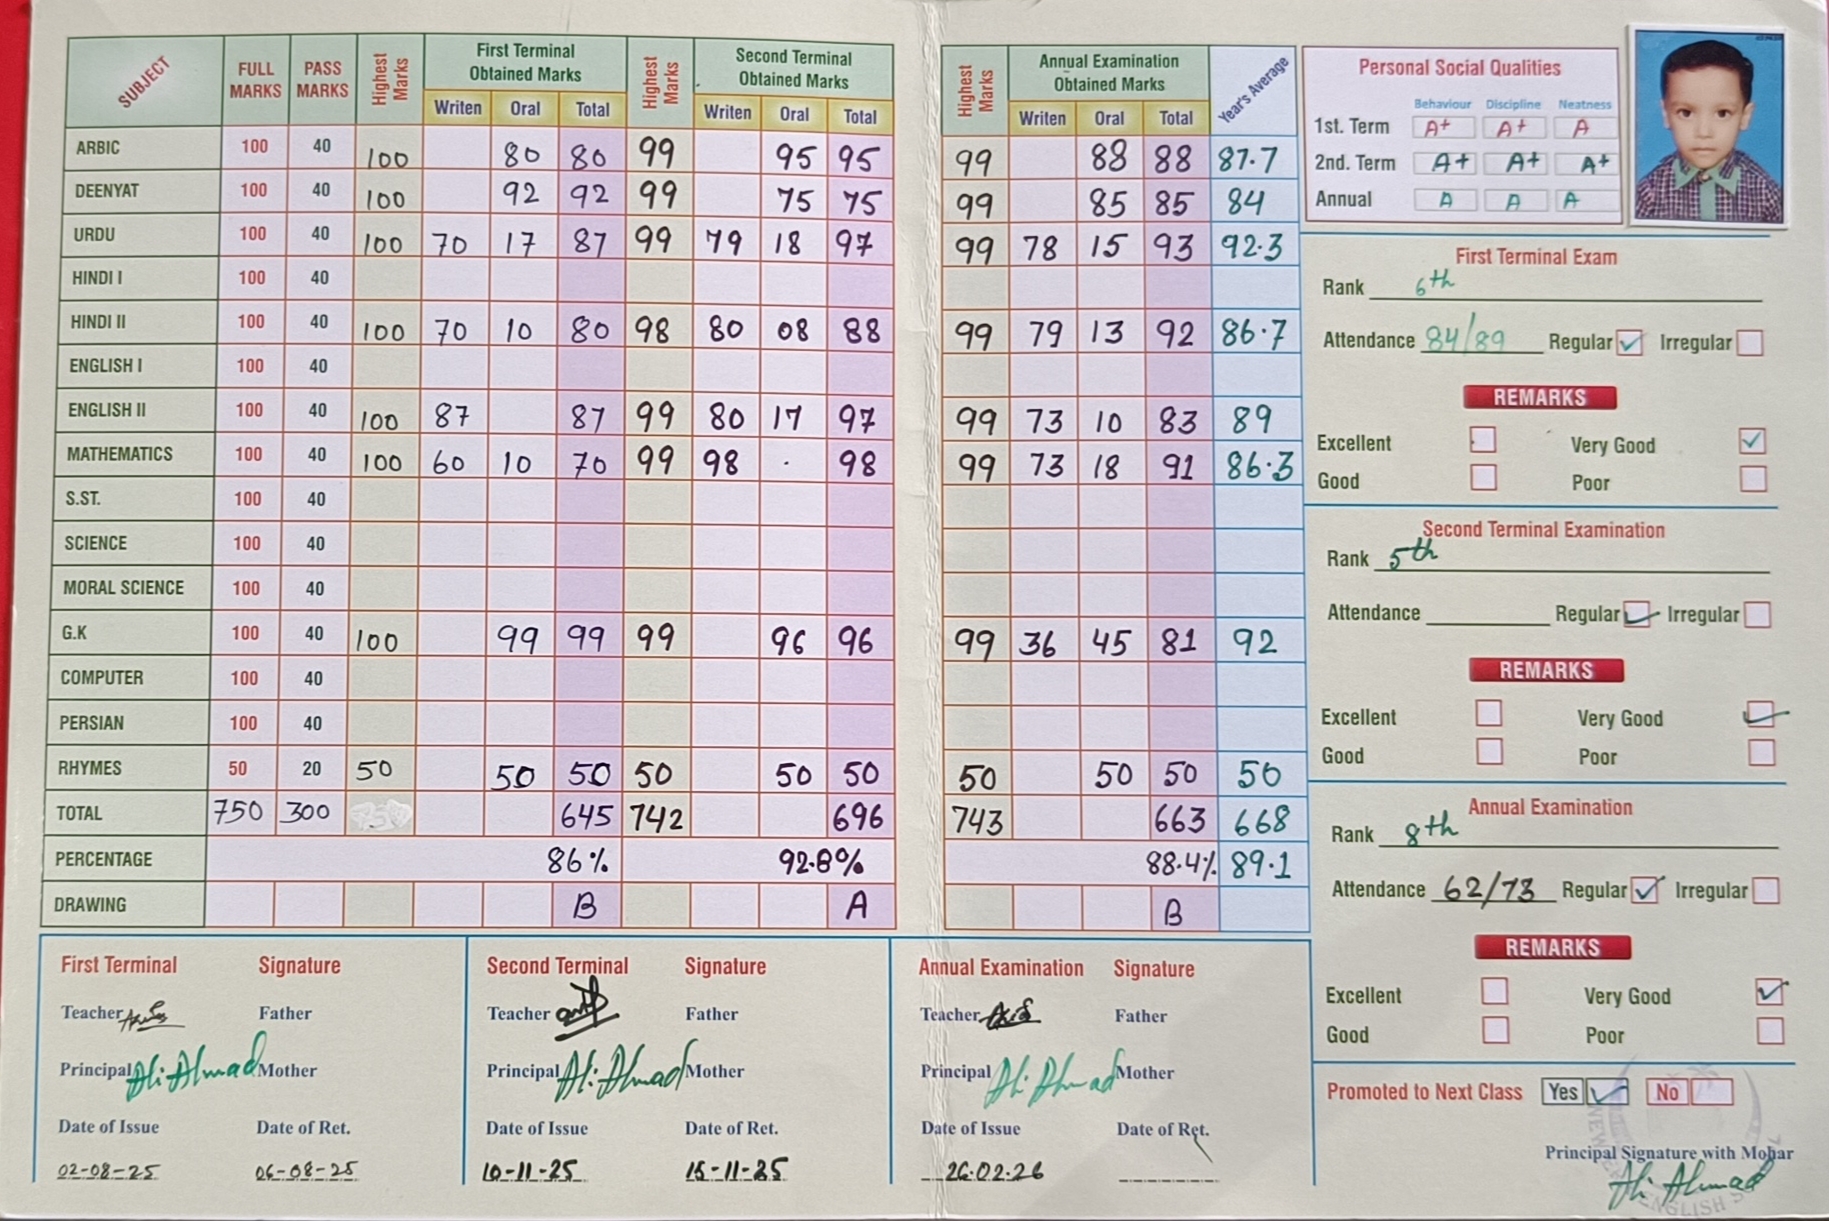 SUBJECT FULL MARKS PASS MARKS Highest Marks First Terminal Obtained Marks Highest Marks Second Terminal Obtained Marks Highest Marks Annual Examination Obtained Marks Year's Average
Writen Oral Total Writen Oral Total Writen Oral Total
ARBIC 100 40 100 80 80 99 95 95 99 88 88 87.7
DEENYAT 100 40 100 92 92 99 75 75 99 85 85 84
URDU 100 40 100 70 17 87 99 79 18 97 99 78 15 93 92.3
HINDI I 100 40
HINDI II 100 40 100 70 10 80 98 80 08 88 99 79 13 92 86.7
ENGLISH I 100 40
ENGLISH II 100 40 100 87 87 99 80 17 97 99 73 10 83 89
MATHEMATICS 100 40 100 60 10 70 99 98 . 98 99 73 18 91 86.3
S.ST. 100 40
SCIENCE 100 40
MORAL SCIENCE 100 40
G.K 100 40 100 99 99 99 96 96 99 36 45 81 92
COMPUTER 100 40
PERSIAN 100 40
RHYMES 50 20 50 50 50 50 50 50 50 50 50 50
TOTAL 750 300 645 742 696 743 663 668
PERCENTAGE 86% 92.8% 88.4% 89.1
DRAWING B A B
Personal Social Qualities
Behaviour Discipline Neatness
1st. Term A+ A+ A
2nd. Term A+ A+ A+
Annual A A A
First Terminal Exam
Rank 6th
Attendance 84/89 Regular Irregular
REMARKS
Excellent Very Good
Good Poor
Second Terminal Examination
Rank 5th
Attendance Regular Irregular
REMARKS
Excellent Very Good
Good Poor
Annual Examination
Rank 8th
Attendance 62/73 Regular Irregular
REMARKS
Excellent Very Good
Good Poor
Promoted to Next Class Yes No
Principal Signature with Mohar
Ali Ahmad
First Terminal Signature
Teacher Father
Principal Ali Ahmad Mother
Date of Issue Date of Ret.
02-08-25 06-08-25
Second Terminal Signature
Teacher Father
Principal Ali Ahmad Mother
Date of Issue Date of Ret.
10-11-25 15-11-25
Annual Examination Signature
Teacher Father
Principal Ali Ahmad Mother
Date of Issue Date of Ret.
26.02.26